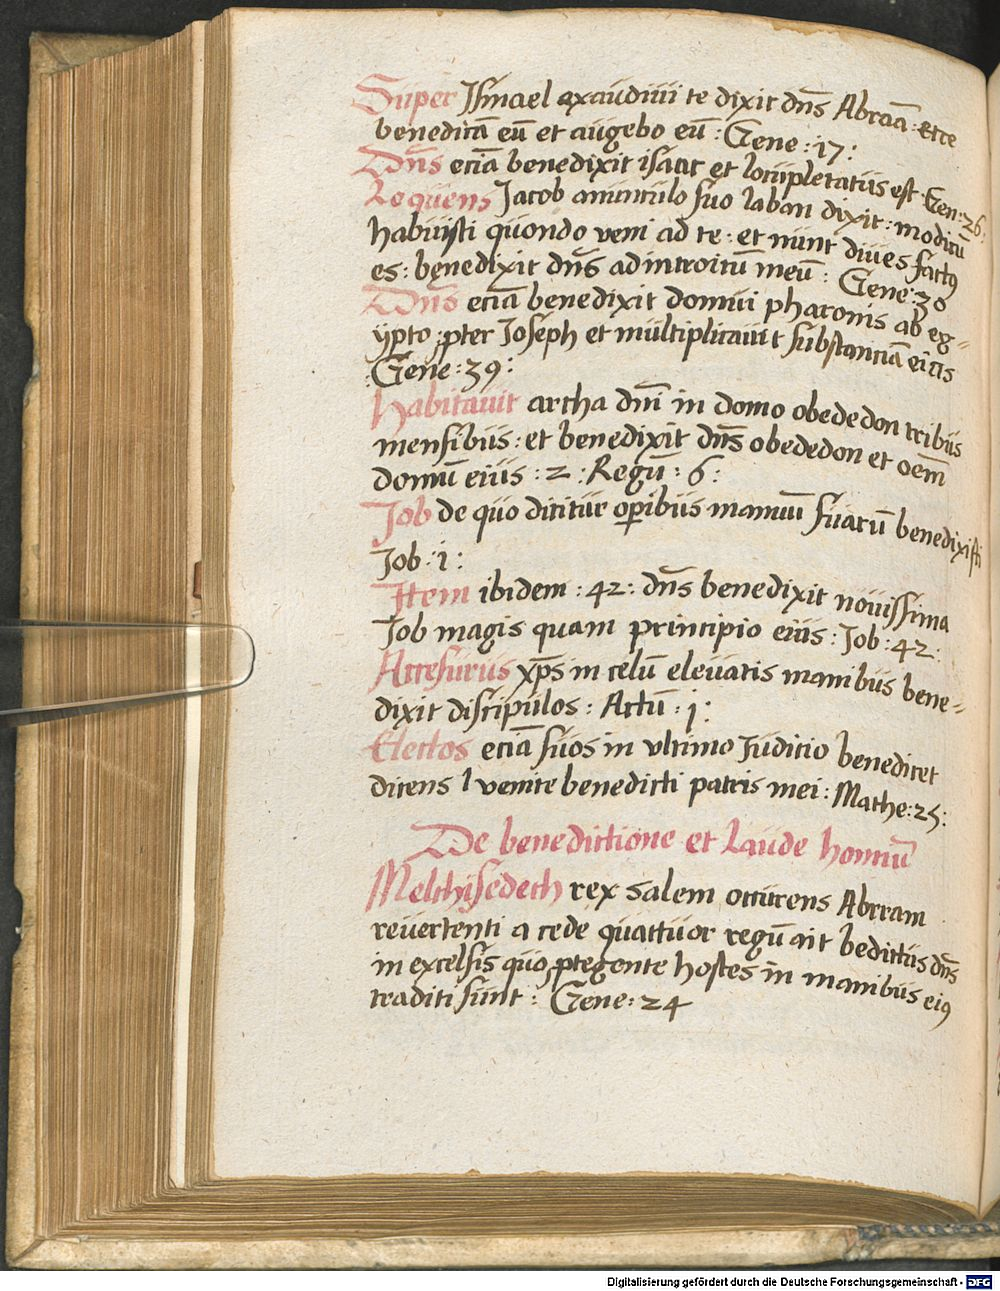 Super Ismael exaudiui te dixit dn̄s Abraā: Ecce
benedicā eū et augebo eū: Gene: 17:
Dn̄s eciā benedixit isaac et locupletatus est Gen: 26:
Loquens Jacob auunculo suo laban dixit: modicū
habuisti quondo veni ad te: et nunc diues factꝰ
es: benedixit dn̄s ad introitū meū: Gene: 30
Dn̄s eciā benedixit domui pharonis ab eg=
ypto: ꝓpter Joseph et multiplicauit substanciā eius
Gene: 39:
Habitauit archa dn̄i in domo obededon tribus
mensibus: et benedixit dn̄s obededon et oēm
domū eius: 2: Regū: 6:
Job de quo dicitur oꝑibus manuū suarū benedixisti
Job: 1:
Item ibidem: 42: dn̄s benedixit nouissima
Job magis quam principio eius: Job: 42:
Accesurus xp̄s in celū eleuatis manibus bene=
dixit discipulos: Actū: 1:
Electos eciā suos in vltimo Judicio benedicet
dicens venite benedicti patris mei: Mathe: 25:
De benedictione et Laude homīū
Melchisedech rex salem occurens Abrram
reuertenti a cede quattuor regū ait bedictus dn̄s
in excelsis quo ꝓtegente hostes in manibus eiꝰ
traditi sunt: Gene: 24
Digitalisierung gefördert durch die Deutsche Forschungsgemeinschaft - DFG